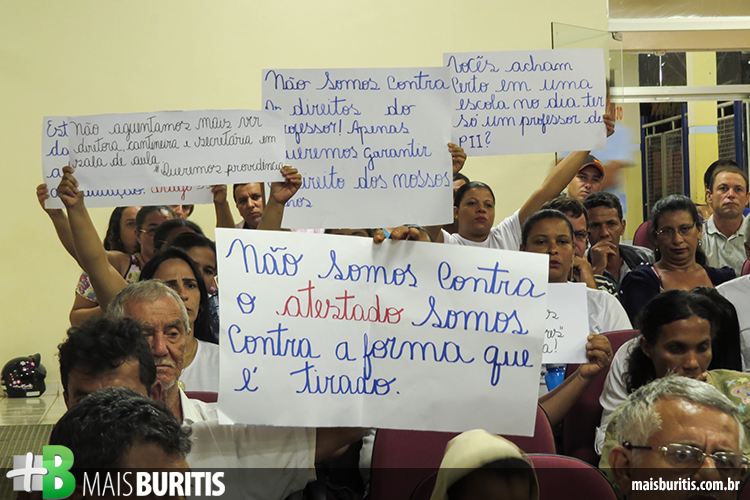 Est
da
a
Não aguentamos mais ver
diretora, cantineira e secretária em
sala de aula.
*Queremos providência
Não somos contra
os direitos do
professor! Apenas
queremos garantir
direito dos nossos
Vocês acham
certo em uma
escola no dia ter
só um professor de
PII?
Não somos contra
o atestado somos
contra a forma que
é tirado.
os
res"
!
+B MAISBURITIS
maisburitis.com.br